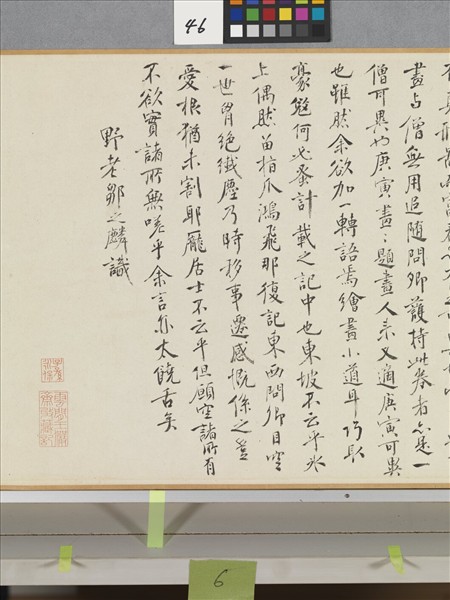 46
畫與僧無用追隨問卿護持此卷者亦是一
僧可異也庚寅畫畫題畫人來又適庚寅可異
也雖然余欲加一轉語焉繪畫小道耳巧取
豪奪何必蚤計載之記中也東坡不云乎
上偶然留指爪鴻飛那復記東西問卿目空
一世胷絕纖塵乃時移事遷感慨係之豈
愛根猶未割耶龐居士不云乎但願空諸所有
不欲實諸所無嗟乎余言亦太饒舌矣
野老鄒之麟識
6